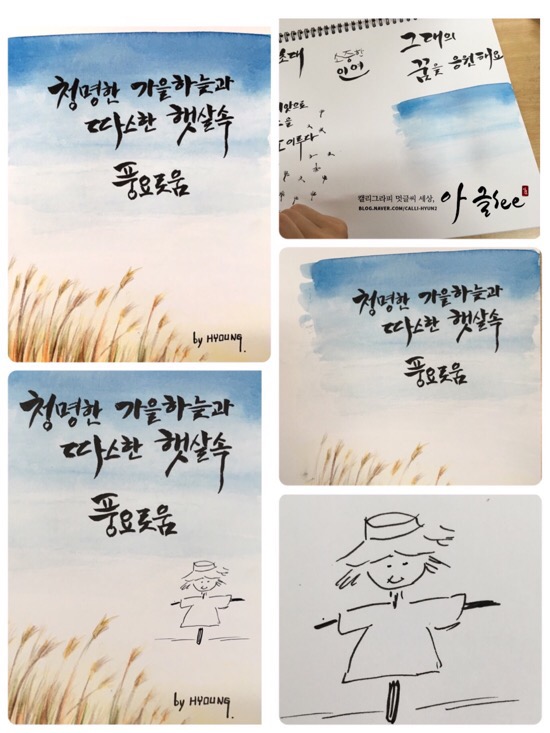 청명한 가을하늘과
따스한 햇살속
풍요로움
by HYOUNG.
초대
소중한
인연
그대의
꿈을 응원해요
이루다
캘리그라피 멋글씨 세상,
BLOG.NAVER.COM/CALLI-HYUN2
아 글see
청명한 가을하늘과
따스한 햇살속
풍요로움
청명한 가을하늘과
따스한 햇살속
풍요로움
by HYOUNG.